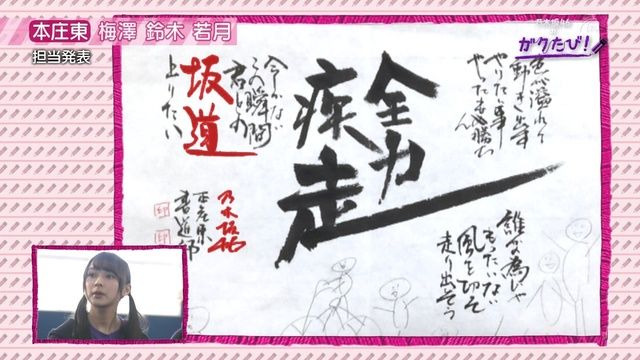 本庄東 梅澤 鈴木 若月
担当発表
乃木坂46
ガクたび!
全力
疾走
やりたい事
やったもん勝ち
誰が為じゃ
もったいない
風を切って
走り出そう
今しかない
この瞬間
君と
坂道
上りたい
乃木坂46
本庄東
書道部